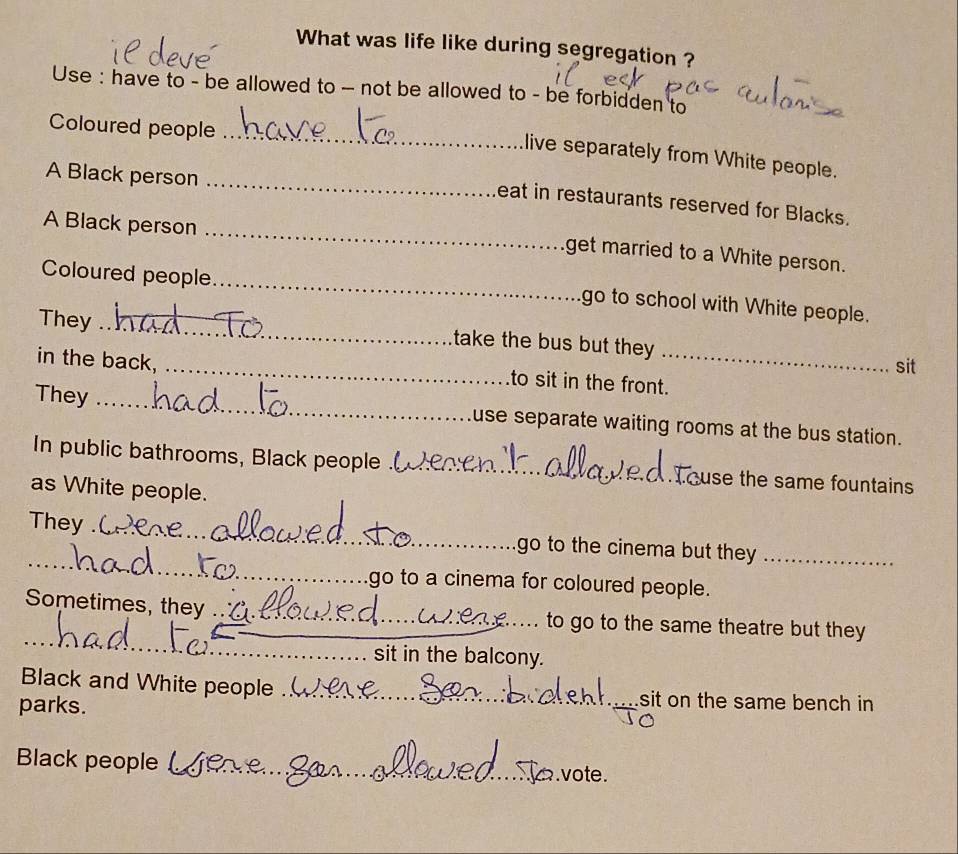 What was life like during segregation ?
il devé
il est pas autorise
Use : have to - be allowed to – not be allowed to - be forbidden to
Coloured people ...have to...live separately from White people.
A Black person ...eat in restaurants reserved for Blacks.
A Black person ...get married to a White person.
Coloured people...go to school with White people.
They ...had To...take the bus but they ... sit
in the back, ...to sit in the front.
They ...had to...use separate waiting rooms at the bus station.
In public bathrooms, Black people ...weren't allowed to use the same fountains
as White people.
They ...were allowed to...go to the cinema but they ...
...had to...go to a cinema for coloured people.
Sometimes, they ...allowed were... to go to the same theatre but they
...had to... sit in the balcony.
Black and White people ...were ... sit on the same bench in
To
parks.
Black people were ... allowed To.vote.